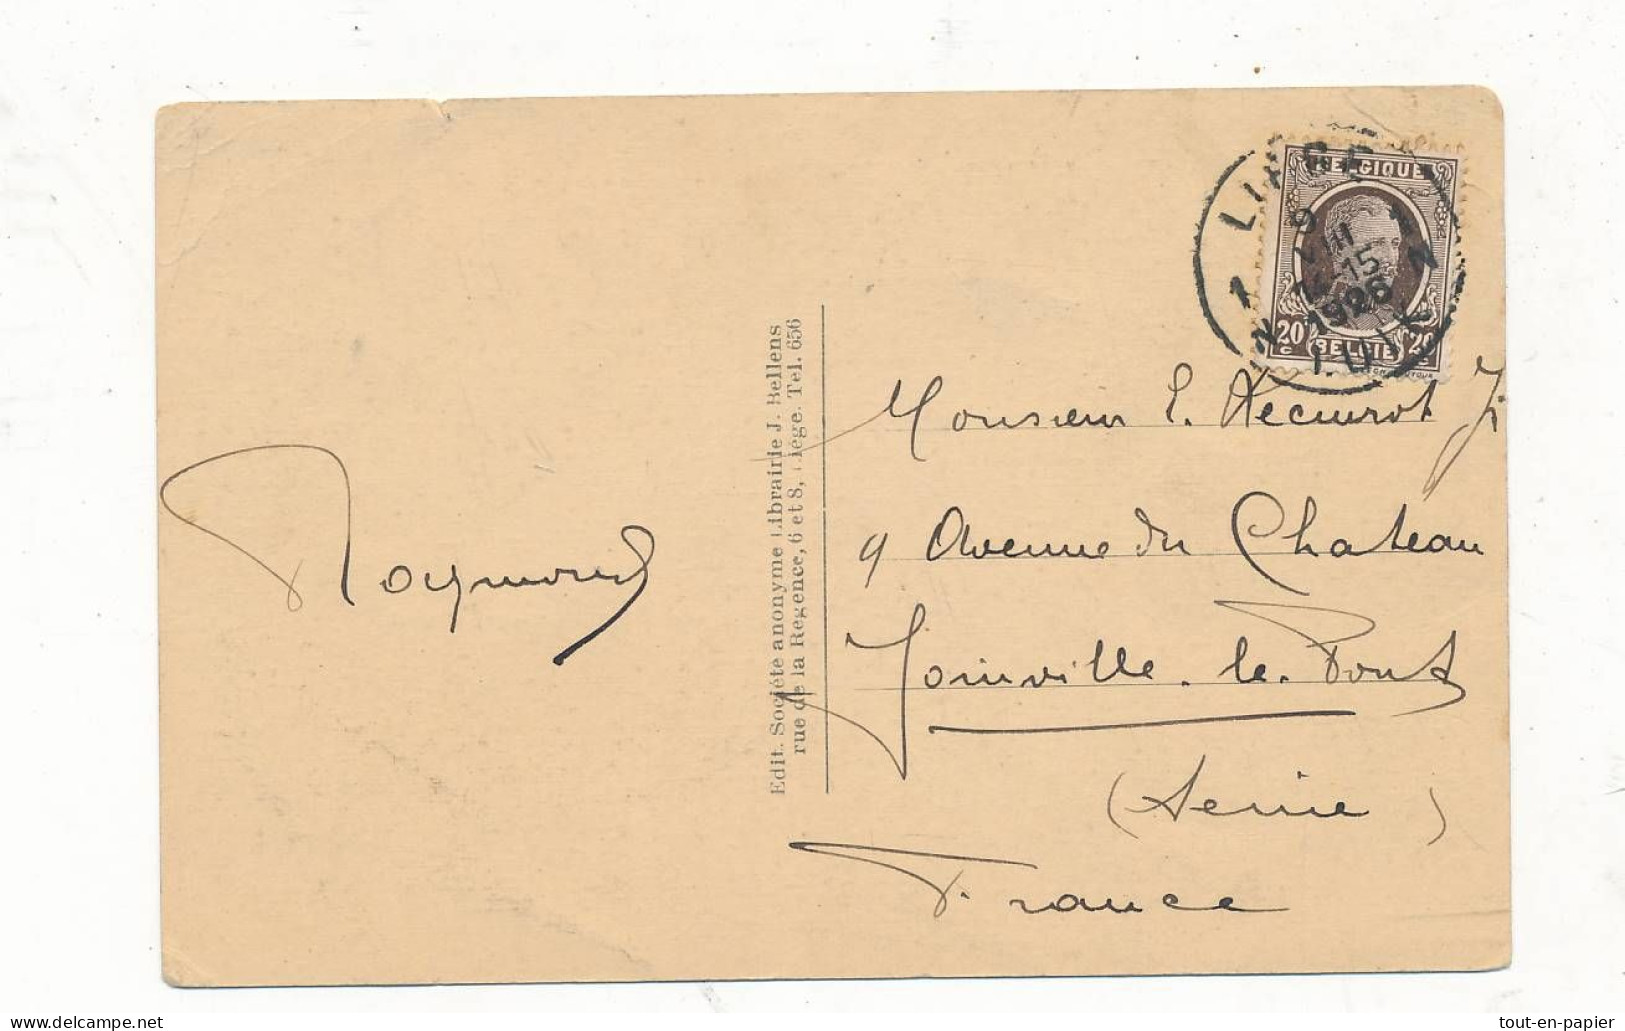 BELGIQUE
LIEGE
9
VIII
-15
1926
LUIK
1
20c
BELGIE
20c
Monsieur E. Jr
9 Avenue du Chateau
Joinville-le-Pont
(Seine)
France
Raymond
Edit. Société anonyme Librairie J. Bellens
rue de la Régence, 6 et 8, Liége. Tél. 656
tout-en-papier